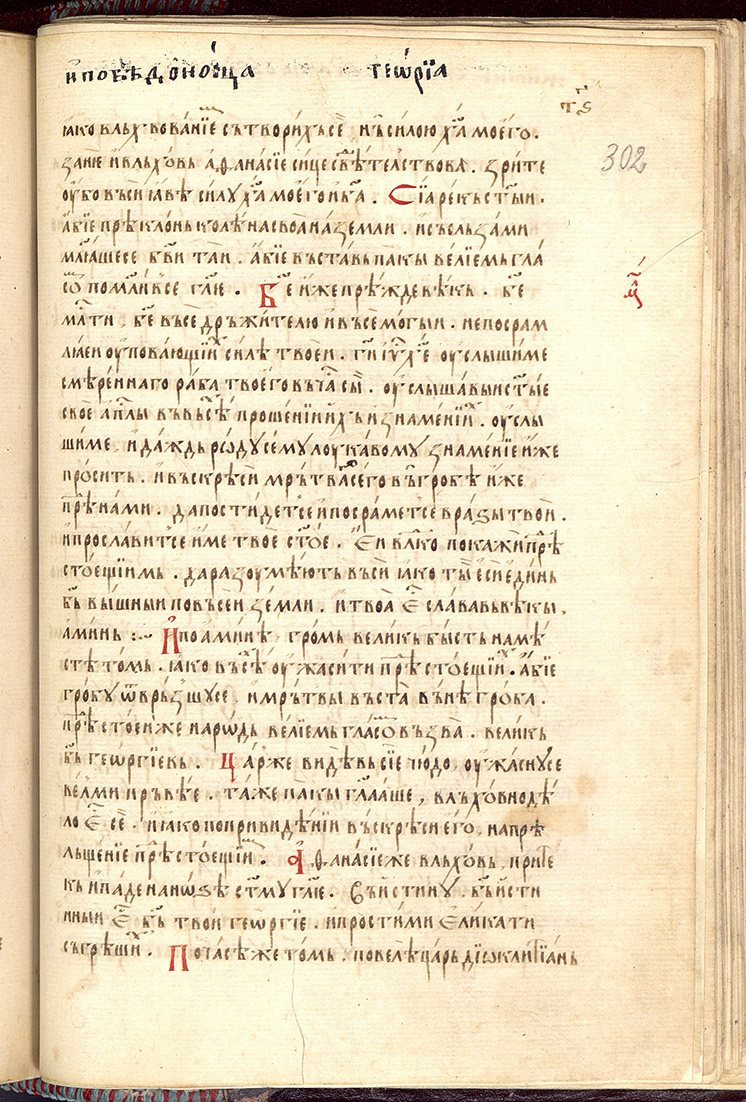 и побѣдоно́сца геѡ́рїа
т҃ѕ
302
іако влъхвованїе сътворихъ се . нъ силою х҃а моего .
зане и влъховь аѳанасїе сице свѣтелствова . зрите
оубо въси іавѣ силу х҃а моего и б҃а . Сїа рекъ ст҃ыи .
абїе прѣклонь колѣна своа на земли . и съ слъзами
мл҃ꙗше се б҃ви таи . абїе въставь пакы велїемь гла
сѡ помл҃и все гл҃ѥ . Б҃е иже прѣжде вѣкь . б҃е
мл҃сти , б҃е въседръжителю и въсемогыи . не посрам
лꙗеи оуповающїиⷯ силѣ твоеи . г҃и і҃у х҃е оуслыши ме
смѣреннаго раба твоего въ ча сы . оуслышавыи ст҃ые
свое ап҃лы въ въсѣ прошенїи иⷯ и знаменїиⷯ . оуслы
ши ме . и даждь рѡду сему лоукавому знаменїе иже
просить . и въскрѣси мрътваⷢ сего въ гробѣ иже
прѣⷣ нами . да постидет се и посрамет се врази твои .
и прославит се име твое ст҃ое . Еи вл҃ко покажи прѣⷣ
стоещїимь . да разоумѣють въси іако ты еси единь
б҃ь вышныи по въсеи земли . и твоа еⷭ слава въ вѣкы .
аминь :~ И по аминѣ . громь великь бысть на мѣ
стѣ томь . іако въсѣⷨ оужасити ти прѣⷣстоещїиⷯ . абїе
гробу ѿвръзшу се . и мрътвы въста вънѣ гроба .
прѣⷣстоеи же нарѡдь велїемь гласѡⷨ възва . великь
б҃ь геѡргїевь . Царⷤ же видѣвь сїе чюдо , оужасну се
велми пръвѣе . таже пакы гл҃ааше , влъховно дѣ
ло еⷭ се . и іако по привидѣнїи въскрѣси его , на прѣ
льщенїе прѣⷣстоещїиⷨ . Аѳанасїе же влъховь , прите
къ и паде на нѡзѣ ст҃му гл҃ѥ . въ истину . въ исти
нныи еⷭ б҃ь твои геѡргїе . и прости ми елика ти
съгрѣшиⷯ . По часѣ же томь . повелѣ царь дїѡклитїань